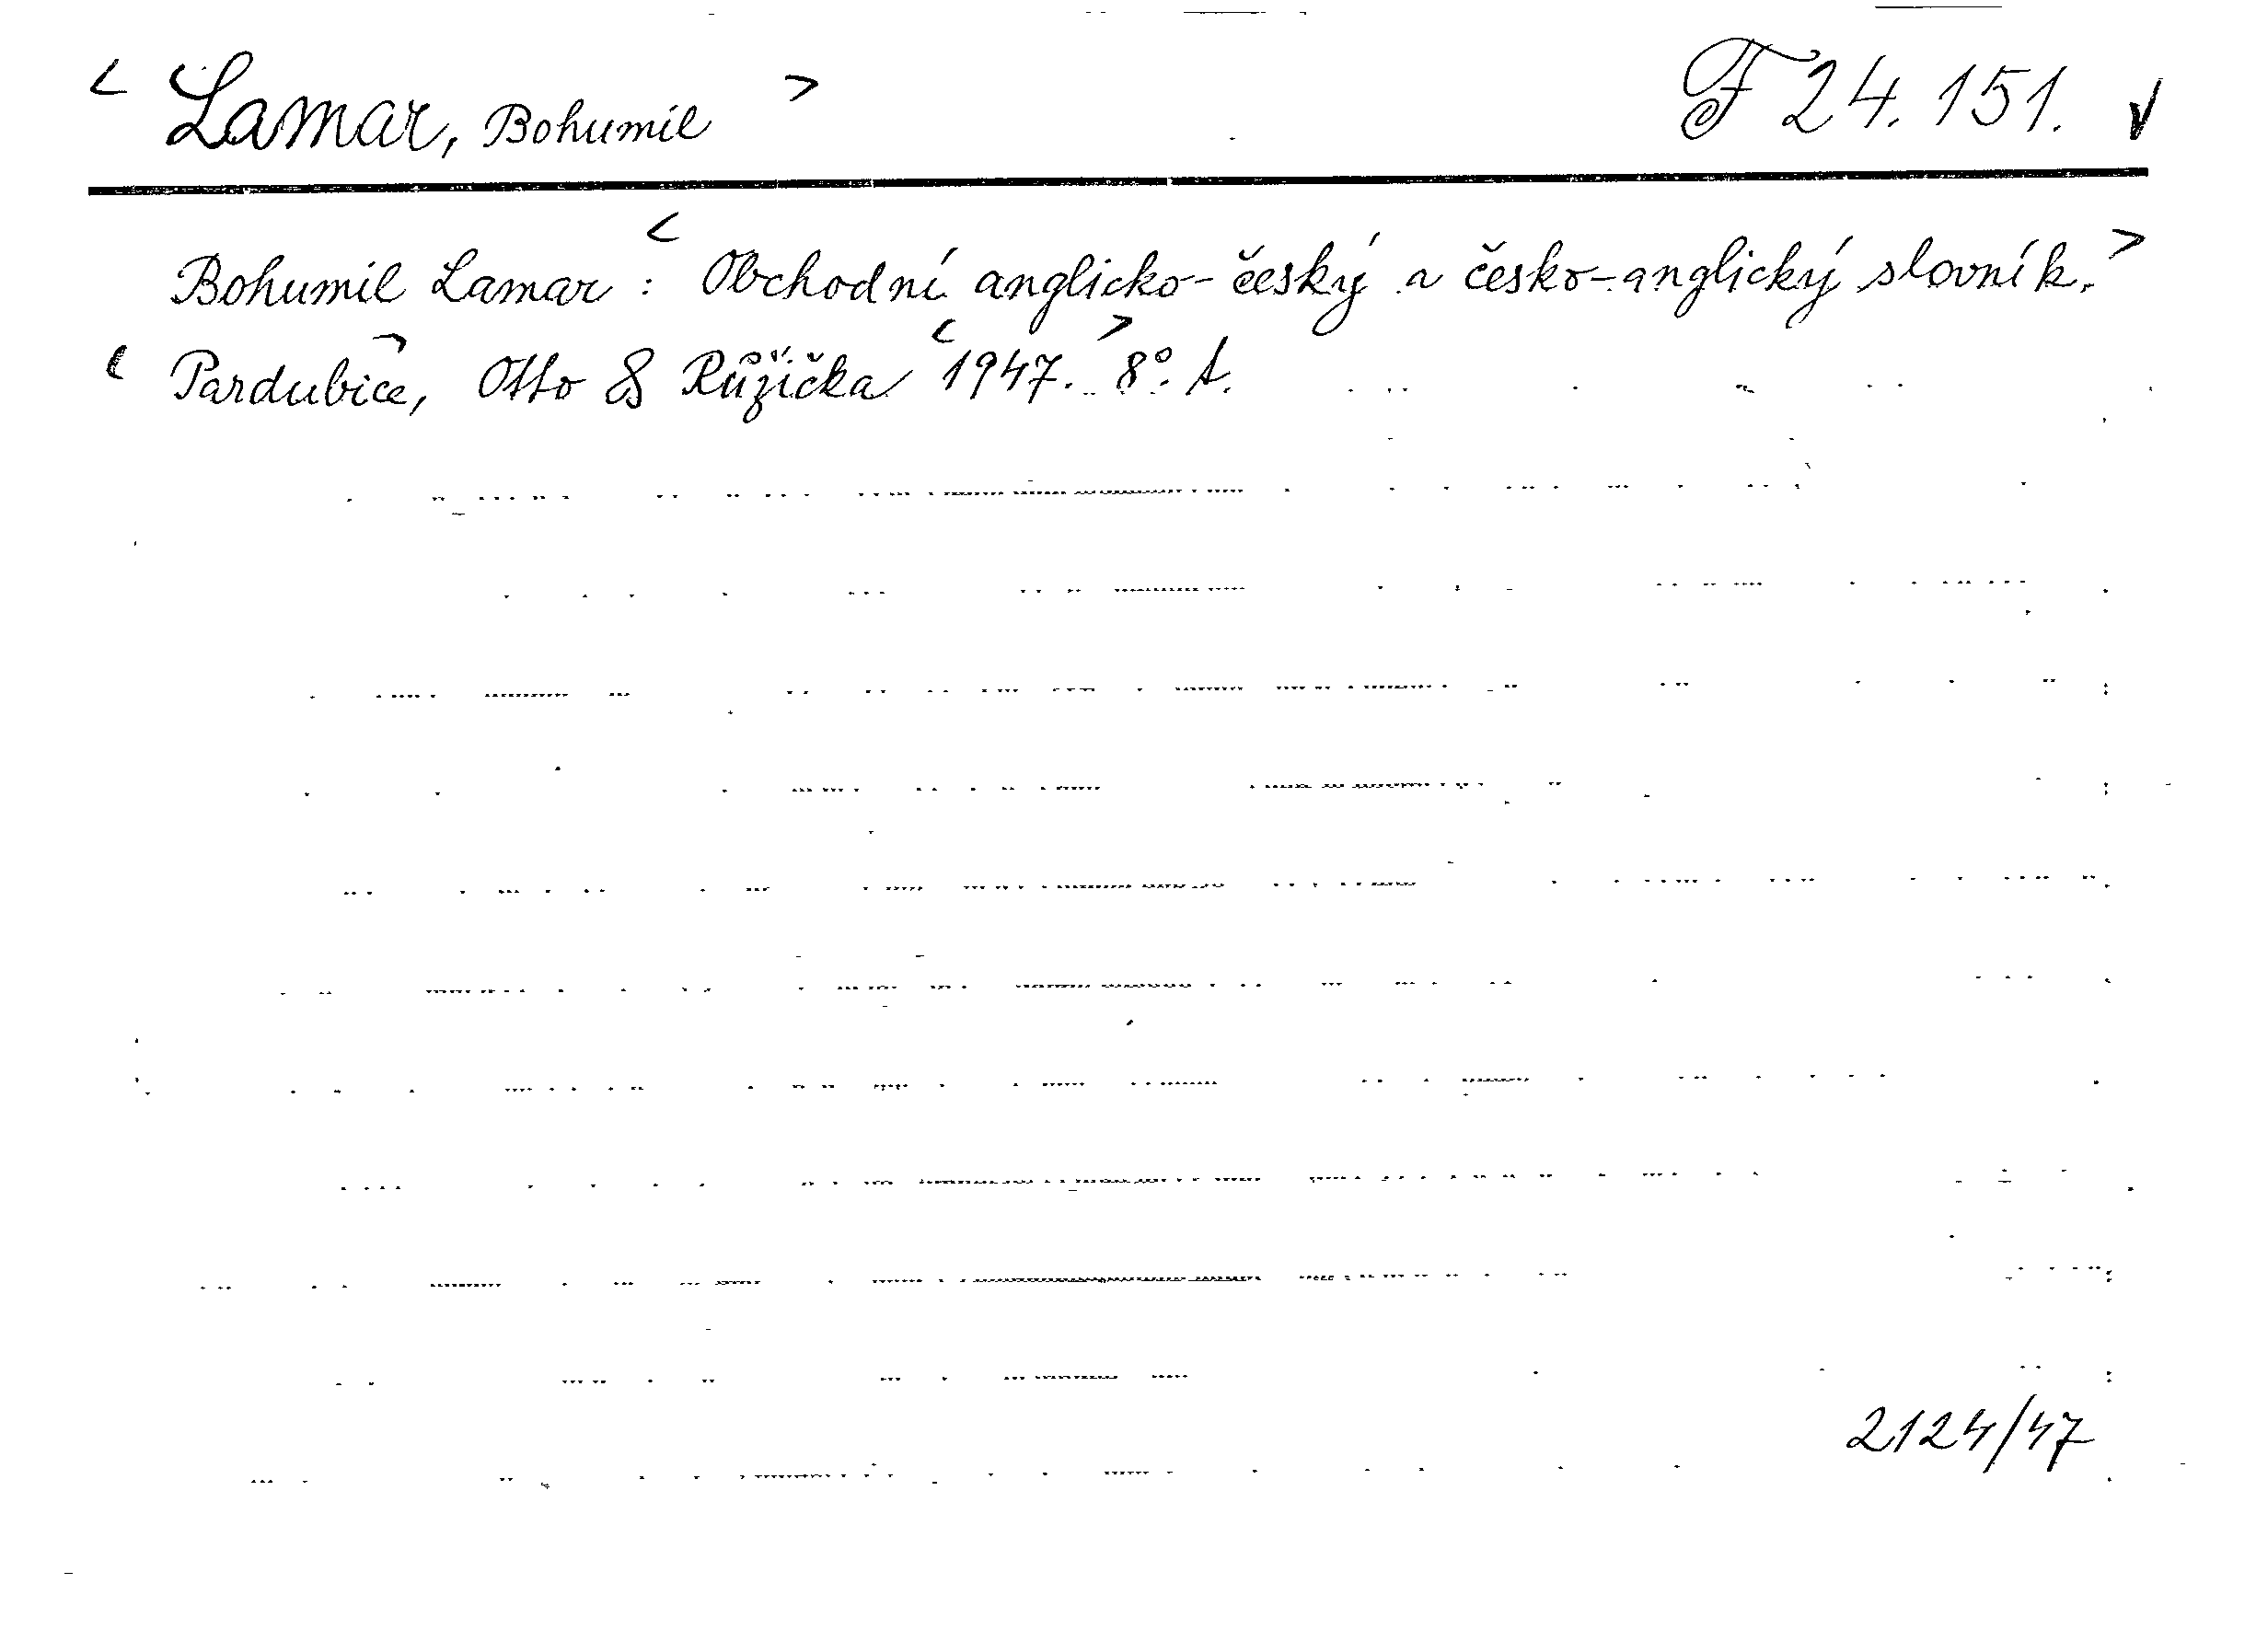 < Lamar, Bohumil > F 24.151. v
Bohumil Lamar: < Obchodní anglicko-český a česko-anglický slovník. >
< Pardubice, > Otto & Růžička < 1947. > 8°.
2124/47